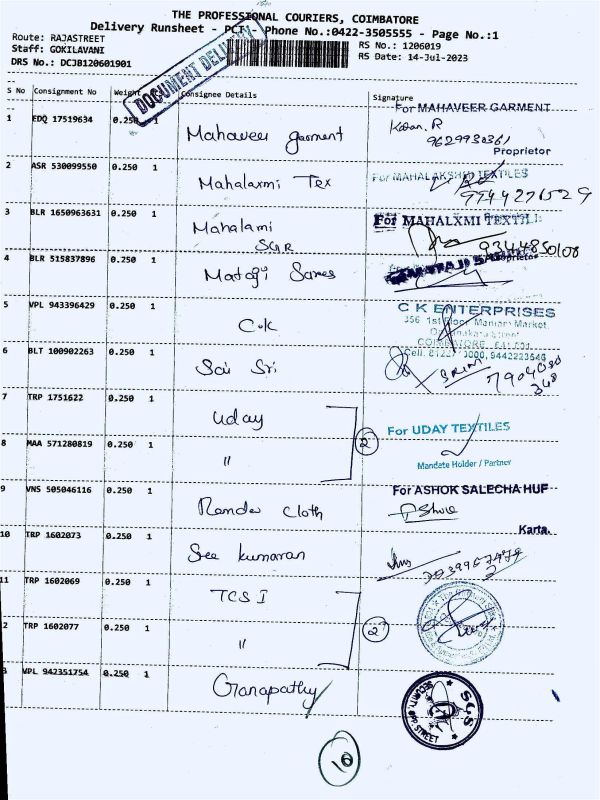 THE PROFESSIONAL COURIERS, COIMBATORE
Delivery Runsheet - PCT - Phone No.:0422-3505555 - Page No.:1
Route: RAJASTREET
Staff: GOKILAVANI
RS No.: 1206019
DRS No.: DCJB120601901
RS Date: 14-Jul-2023
DOCUMENT DELIVERY
S No Consignment No Weight Consignee Details Signature
1 EDQ 17519634 0.250 Mahaveer garment For MAHAVEER GARMENT
9629930361
Proprietor
2 ASR 530099550 0.250 1 Mahalaxmi Tex For MAHALAKSHMI TEXTILES
9944271529
3 BLR 1650963631 0.250 1 Mahalami For MAHALXMI TEXTIL
SGR
9344850108
4 BLR 515837896 0.250 1 Matagi Sarees Proprietor
5 VPL 943396429 0.250 1 C.K C K ENTERPRISES
356 1st Floor Maniam Market
COIMBATORE
6 BLT 100902263 0.250 1 Sai Sri Cell. 3000, 9442223646
7904080
348
7 TRP 1751622 0.250 1 Uday For UDAY TEXTILES
2
8 MAA 571280819 0.250 1 " Mandate Holder / Partner
9 VNS 505046116 0.250 1 Ramdev Cloth For ASHOK SALECHA HUF
Karta.
10 TRP 1602073 0.250 1 Sree kumaran
11 TRP 1602069 0.250 1 TCS I
2
2 TRP 1602077 0.250 1 "
VPL 942351754 0.250 1 Ganapathy SGS
SECURITY
STREET
10